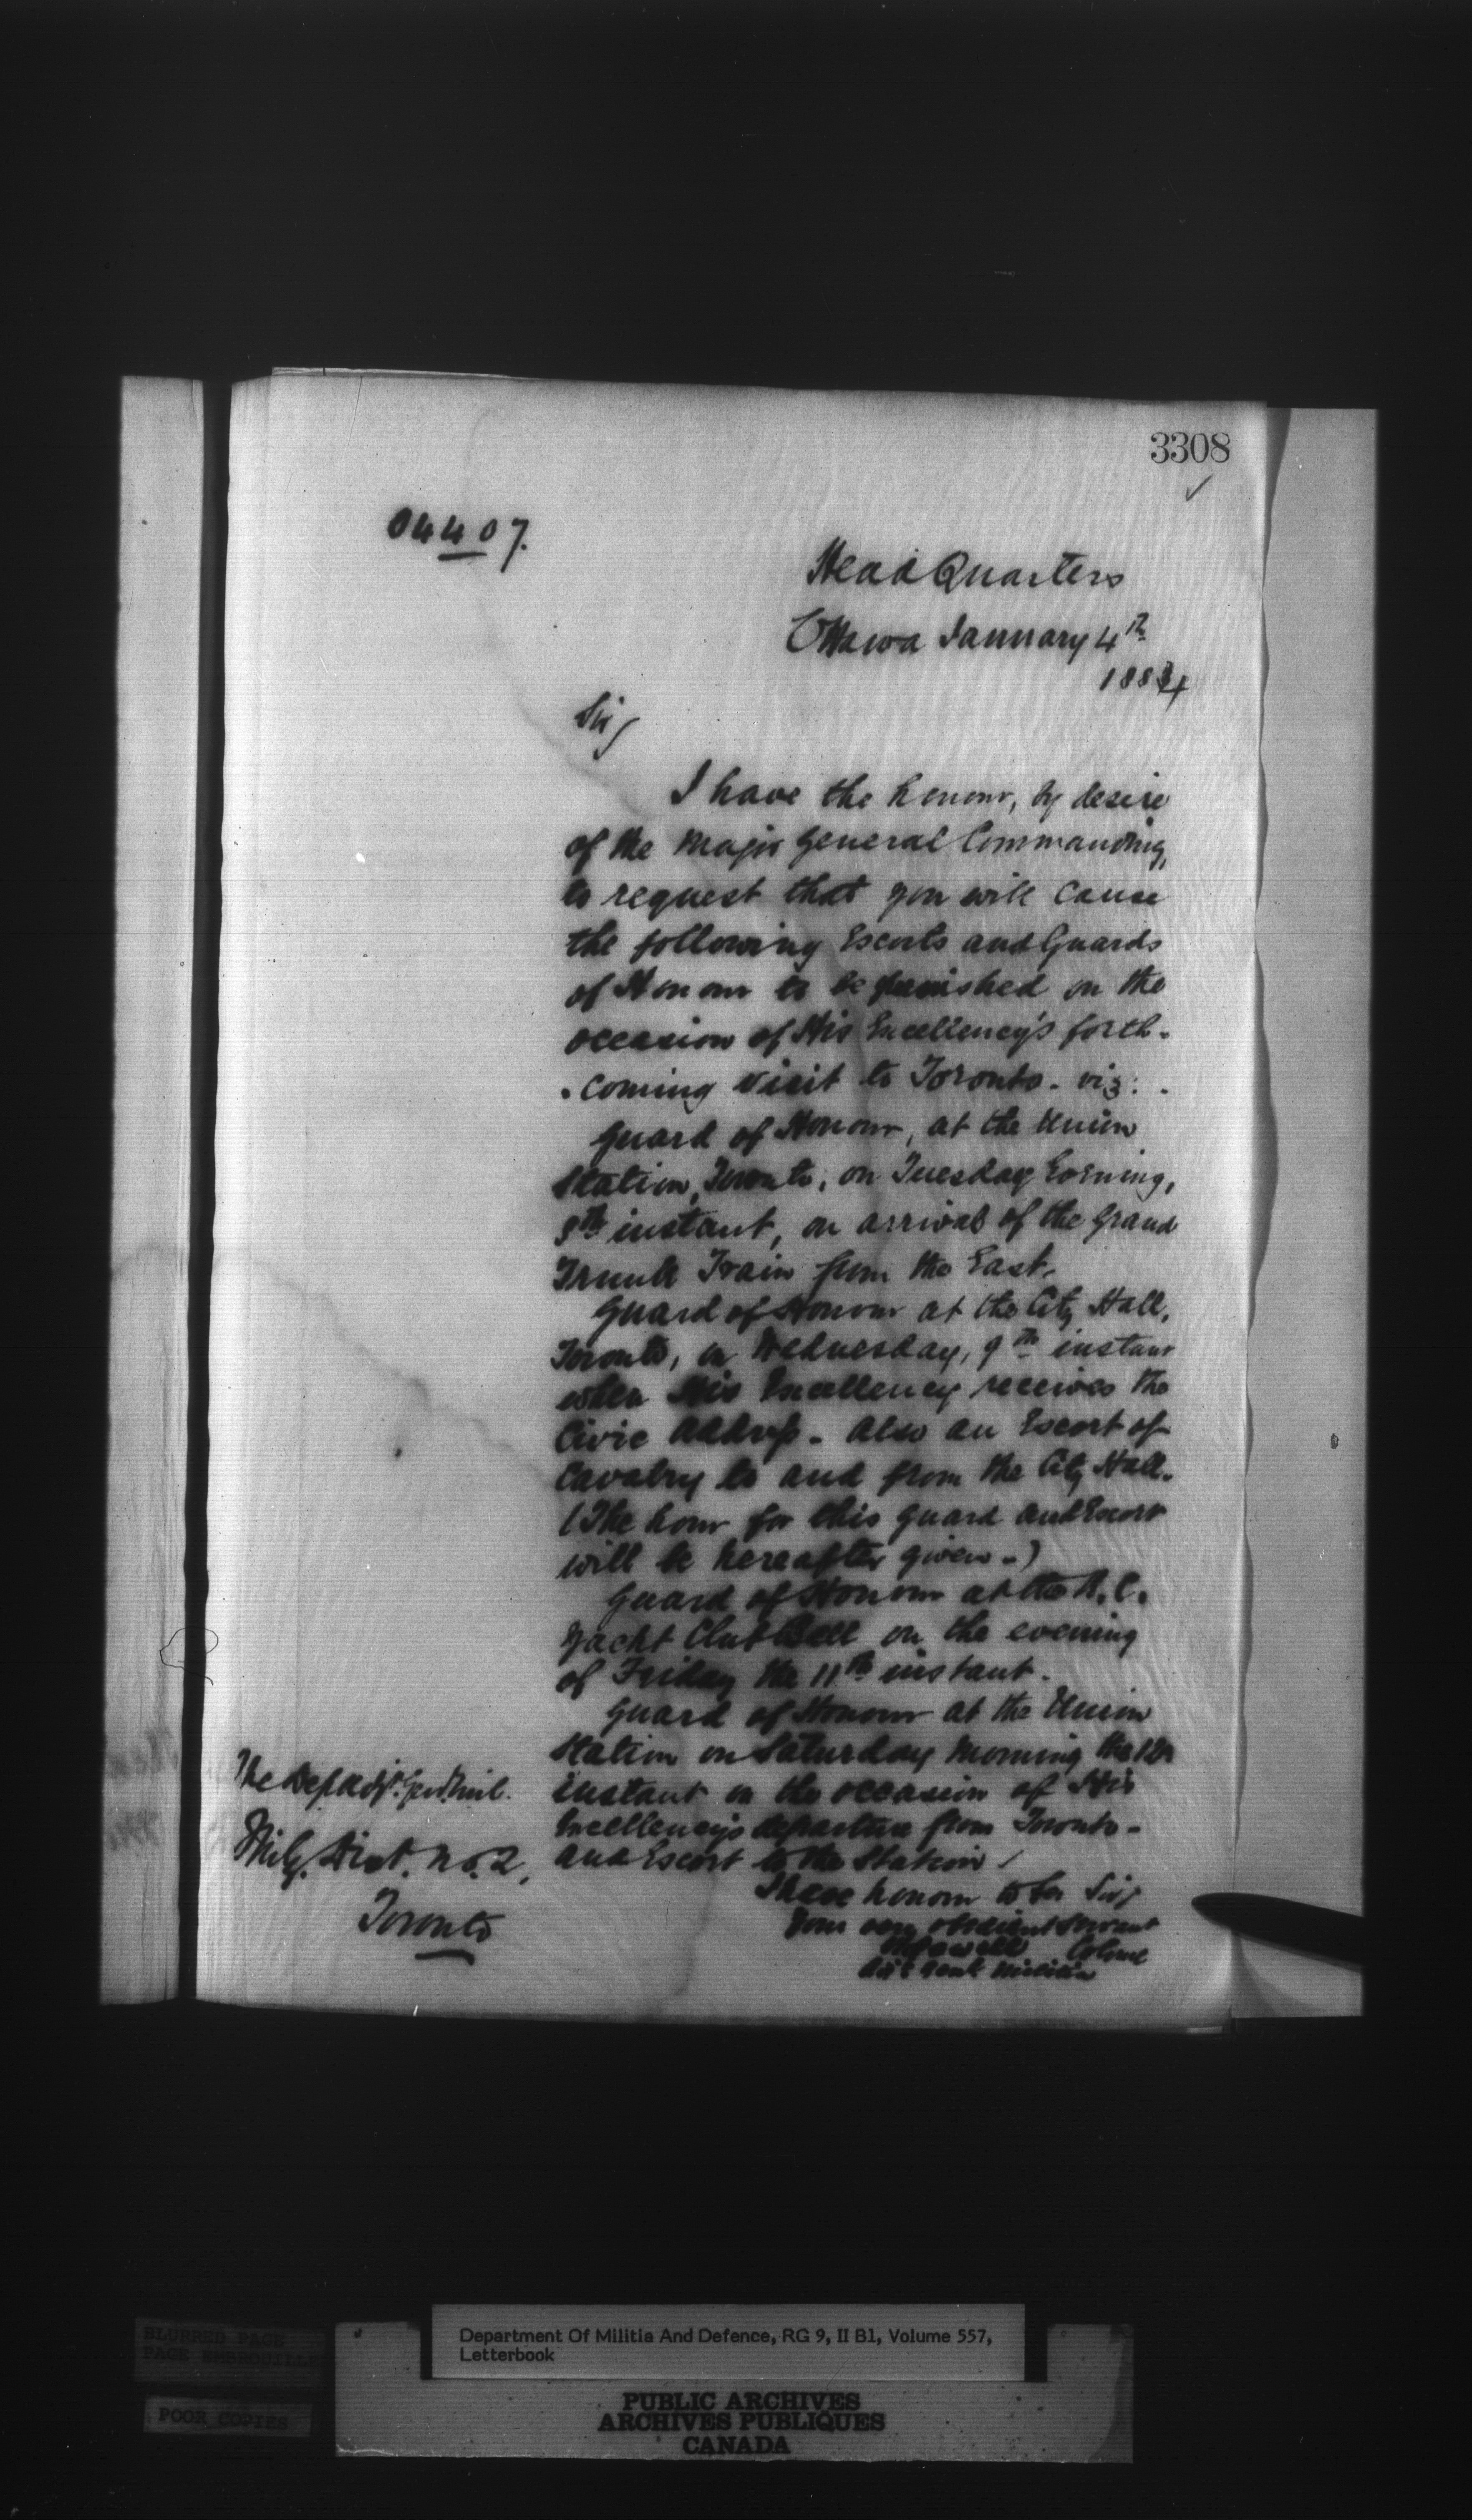 3308
04407.
Head Quarters
Ottawa January 4th
1884
Sir,
I have the honour, by desire
of the Major General Commanding,
to request that you will cause
the following Escorts and Guards
of Honour to be furnished on the
occasion of His Excellency's forth-
-coming visit to Toronto - viz: -
Guard of Honour, at the Union
Station, Toronto, on Tuesday Evening,
8th instant, on arrival of the Grand
Trunk Train from the East.
Guard of Honour at the City Hall,
Toronto, on Wednesday, 9th instant
when His Excellency receives the
Civic Address - also an Escort of
Cavalry to and from the City Hall.
(The hour for this guard and Escort
will be hereafter given -)
Guard of Honour at the R.C.
Yacht Club Ball on the evening
of Friday the 11th instant.
Guard of Honour at the Union
Station on Saturday Morning the 12th
instant on the occasion of His
Excellency's departure from Toronto -
and Escort to the Station /
I have honour to be Sir,
Your very obedient Servant
Powell Colonel
Adjt Genl Militia
The Dep. Adjt. Genl. Mil.
Mily. Dist. No. 2,
Toronto
BLURRED PAGE
PAGE EMBROUILLEE
POOR COPIES
Department Of Militia And Defence, RG 9, II B1, Volume 557,
Letterbook
PUBLIC ARCHIVES
ARCHIVES PUBLIQUES
CANADA